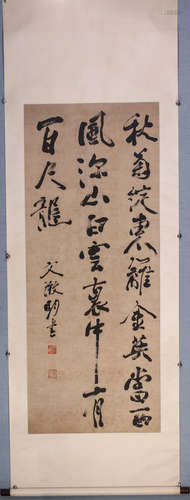 秋菊綻東籬金英當西
風深山白雲裏中有
百尺
文徵明書